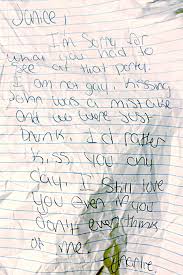 Janice,
I'm sorry for
what you had to
see at that party.
I am not gay, kissing
John was a mistake
and we were just
drunk. I'd rather
kiss you any
day. I still love
you even if you
don't even think
of me.